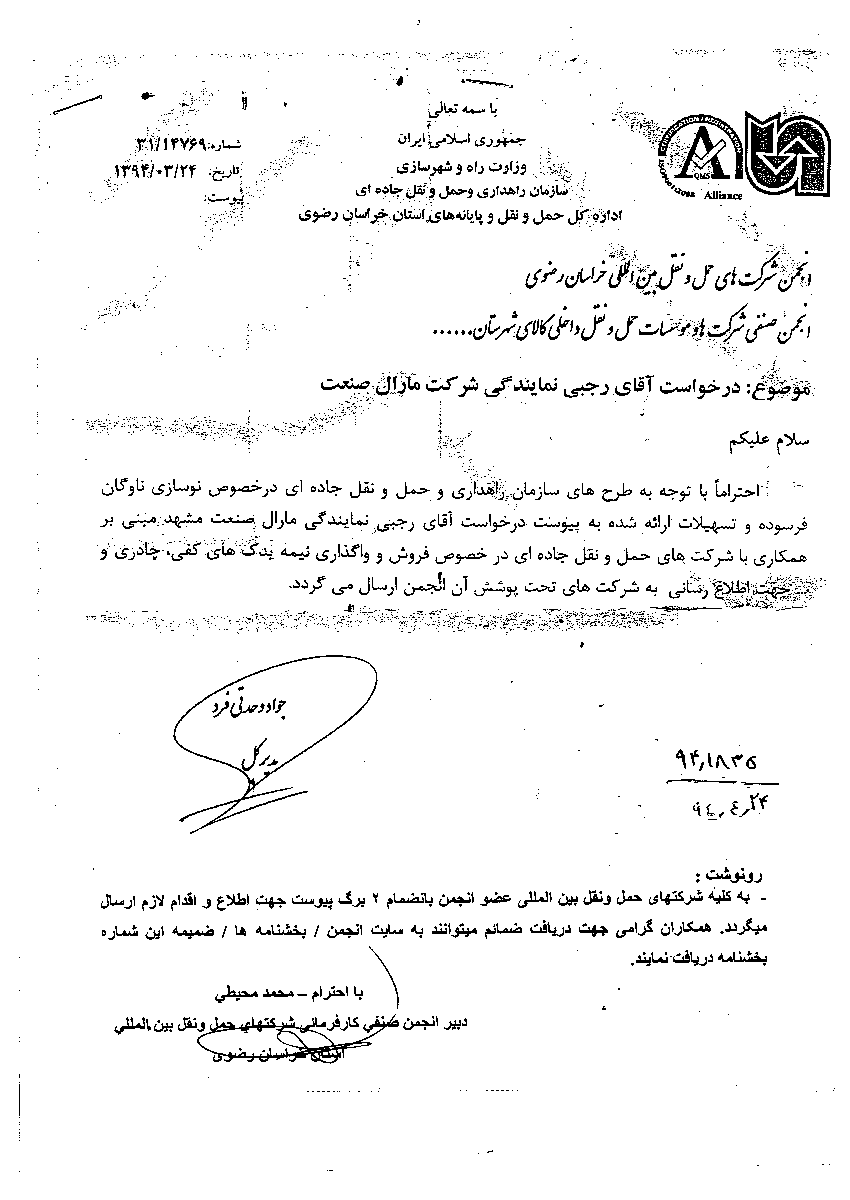 با سمه تعالی
جمهوری اسلامی ایران
وزارت راه و شهرسازی
سازمان راهداری وحمل و نقل جاده ای
اداره کل حمل و نقل و پایانه‌های استان خراسان رضوی
شماره: ۳۱/۱۴۷۶۹
تاریخ: ۱۳۹۴/۰۳/۲۴
پیوست:
QMS
Alliance
انجمن شرکت های حمل و نقل بین المللی خراسان رضوی
انجمن صنفی شرکت ها و موسسات حمل و نقل داخلی کالای شهرستان......
موضوع: درخواست آقای رجبی نمایندگی شرکت مارال صنعت
سلام علیکم
احتراماً با توجه به طرح های سازمان راهداری و حمل و نقل جاده ای درخصوص نوسازی ناوگان
فرسوده و تسهیلات ارائه شده به پیوست درخواست آقای رجبی نمایندگی مارال صنعت مشهد مبنی بر
همکاری با شرکت های حمل و نقل جاده ای در خصوص فروش و واگذاری نیمه یدک های کفی، چادری و
جهت اطلاع رسانی به شرکت های تحت پوشش آن انجمن ارسال می گردد.
جواد وحدتی فرد
مدیر کل
۹۴,۱۸۳۵
۹٤,٤,۲۴
رونوشت :
- به کلیه شرکتهای حمل ونقل بین المللی عضو انجمن بانضمام ۲ برگ پیوست جهت اطلاع و اقدام لازم ارسال
میگردد. همکاران گرامی جهت دریافت ضمائم میتوانند به سایت انجمن / بخشنامه ها / ضمیمه این شماره
بخشنامه دریافت نمایند.
با احترام – محمد محیطي
دبیر انجمن صنفي کارفرمائي شرکتهاي حمل ونقل بین المللي
استان خراسان رضوی